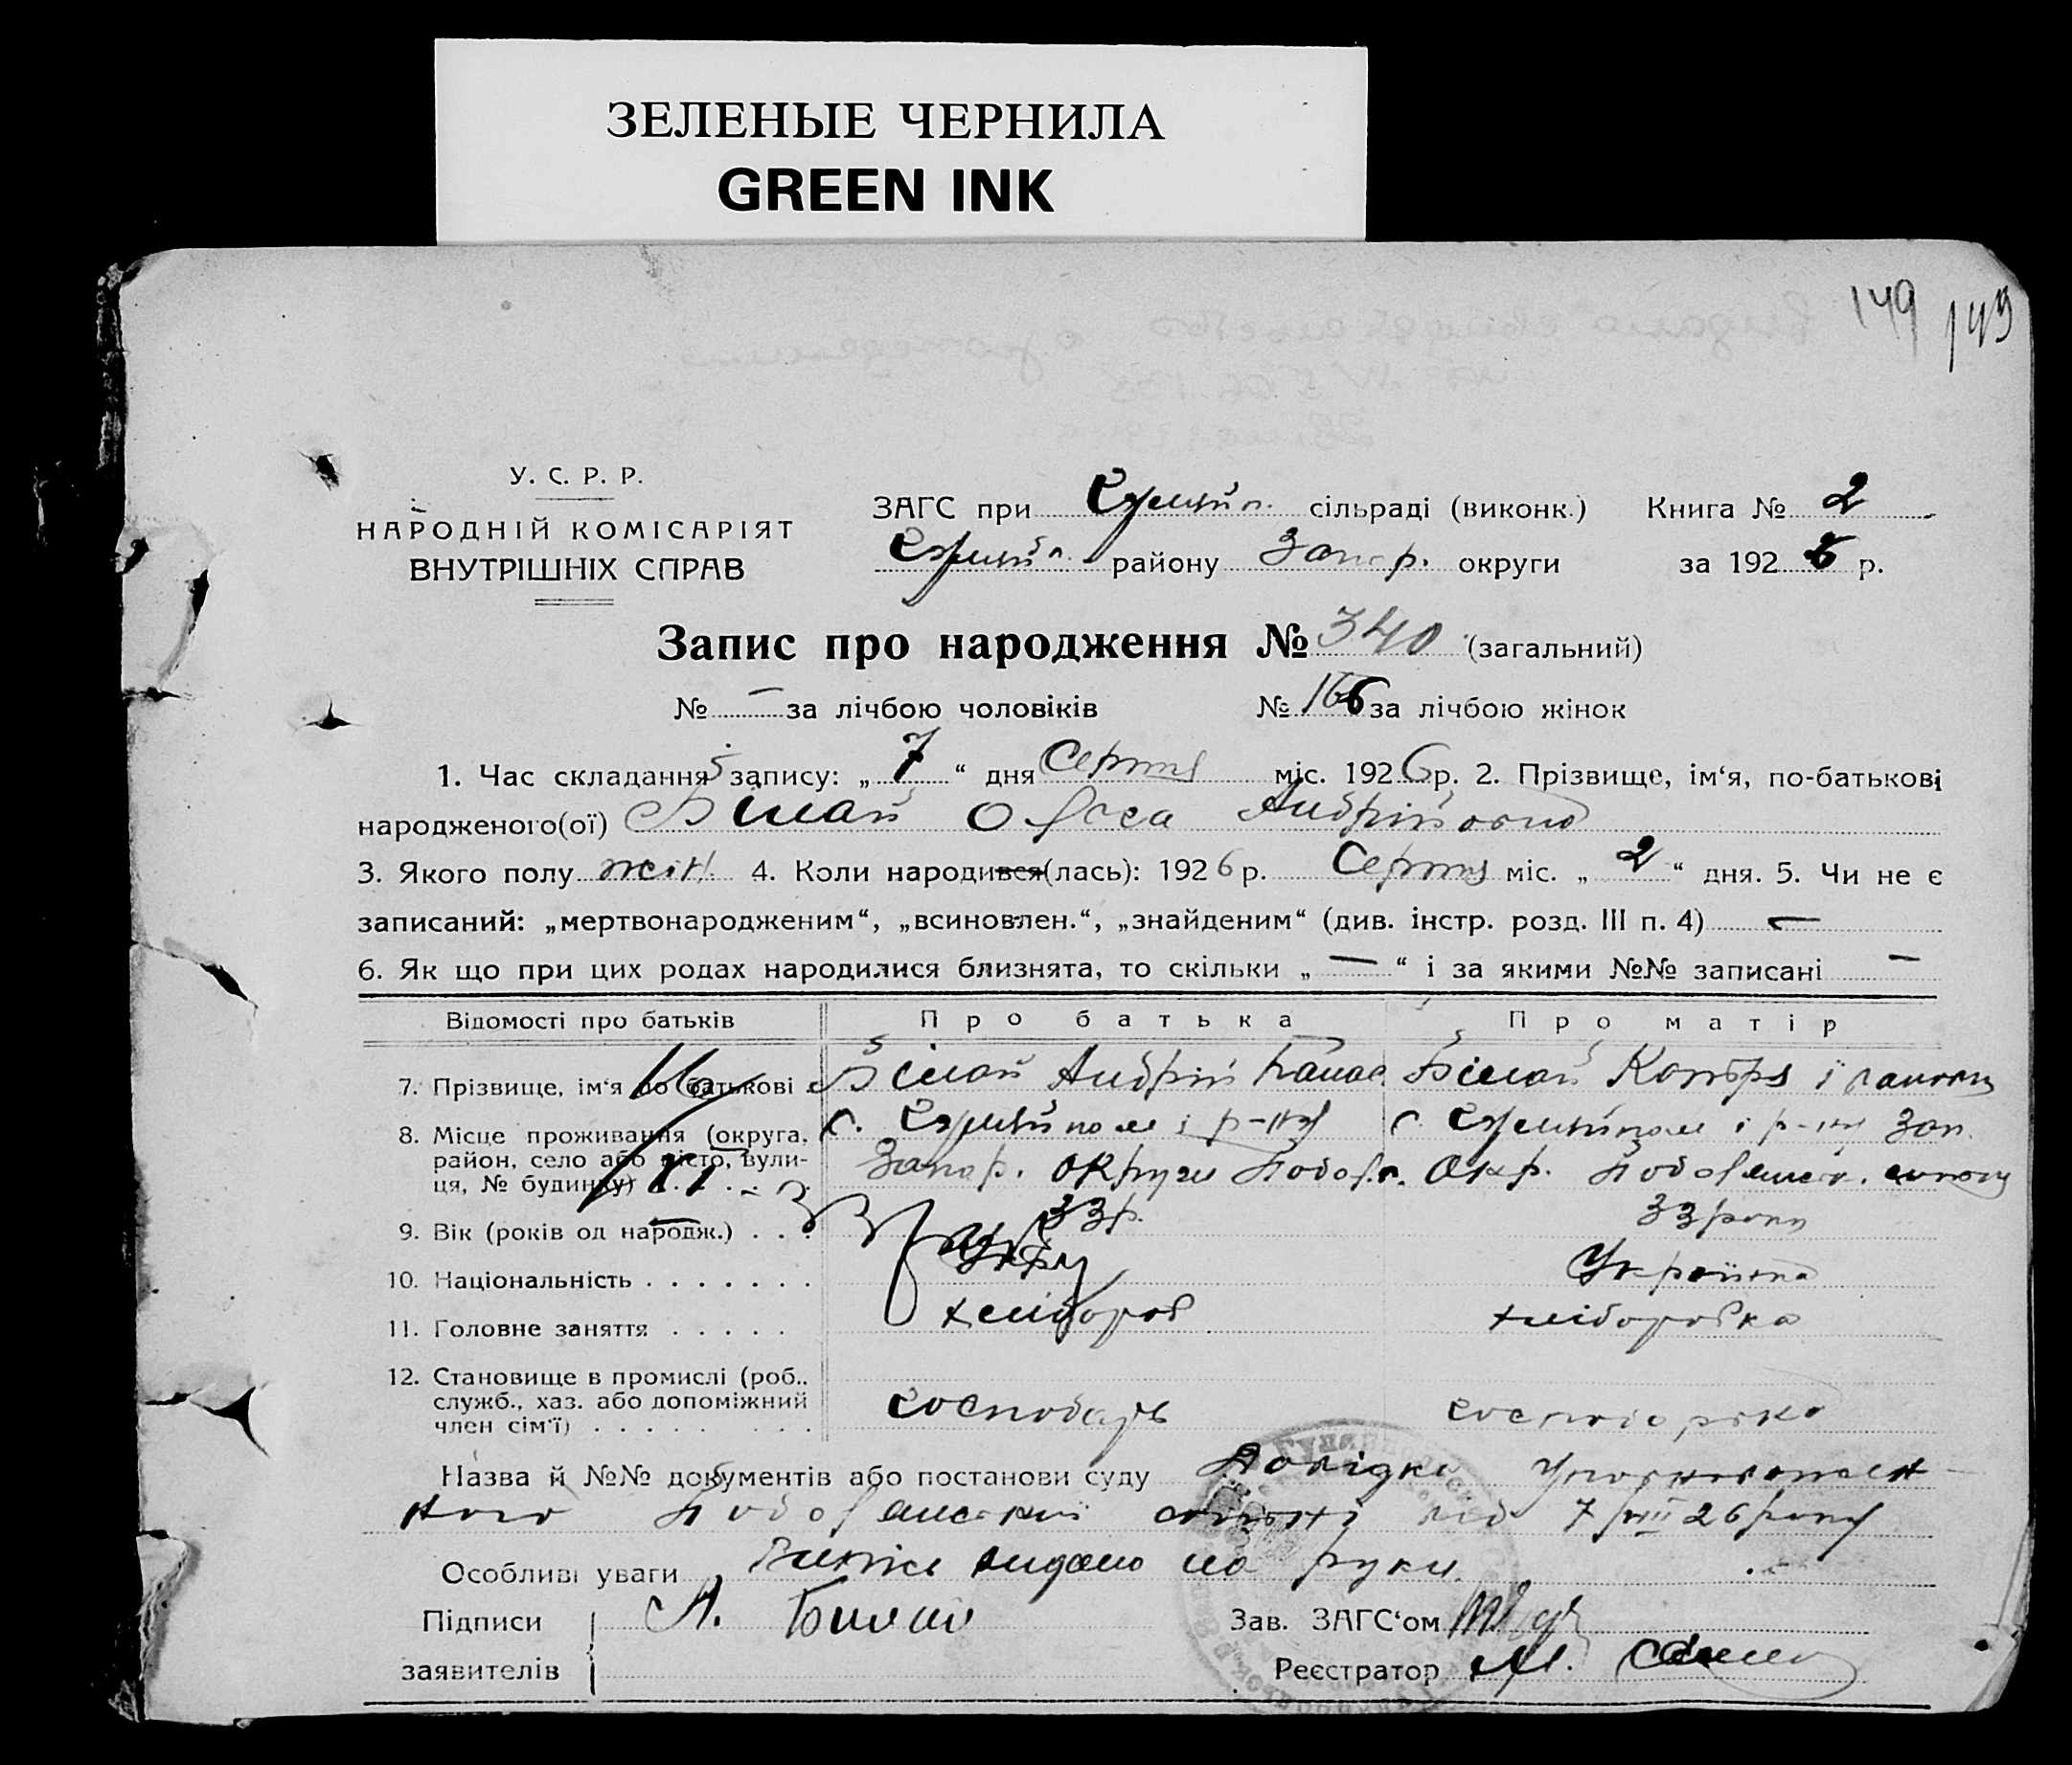 ЗЕЛЕНЫЕ ЧЕРНИЛА
GREEN INK
149 149
У. С. Р. Р.
НАРОДНІЙ КОМІСАРІЯТ
ВНУТРІШНІХ СПРАВ
ЗАГС при Гуляйп. сільраді (виконк.) Книга № 2
Гуляйп. району Запор. округи за 1926 р.
Запис про народження № 340 (загальний)
№ — за лічбою чоловіків № 166 за лічбою жінок
1. Час складання запису: „ 7 “ дня Серпня міс. 1926 р. 2. Прізвище, ім‘я, по-батькові
народженого(ої) Білай Андріївна
3. Якого полу жін. 4. Коли народився(лась): 1926 р. Серпня міс. „ 2 “ дня. 5. Чи не є
записаний: „мертвонародженим“, „всиновлен.“, „знайденим“ (див. інстр. розд. III п. 4) —
6. Як що при цих родах народилися близнята, то скільки „ — “ і за якими №№ записані —
Відомості про батьків Про батька Про матір
7. Прізвище, ім‘я по батькові Білай Андрій Панас Білай
8. Місце проживання (округа, с. Гуляйполе і р-ну с. Гуляйполе і р-ну Зап.
район, село або місто, вули- Запор. округи Окр.
ця, № будинку)
9. Вік (років од народж.) . . . 33 р. 33 роки
10. Національність . . . . . . . Укр Українка
11. Головне заняття . . . . . хлібороб хліборобка
12. Становище в промислі (роб.,
служб., хаз. або допоміжний господарь господарка
член сім‘ї) . . . . . . . .
Назва й №№ документів або постанови суду Довідка Уповноважен-
ного від 7/VIII 26 року
Особливі уваги Випись видано на руки.
Підписи А. Билай Зав. ЗАГС‘ом
заявителів Реєстратор М.